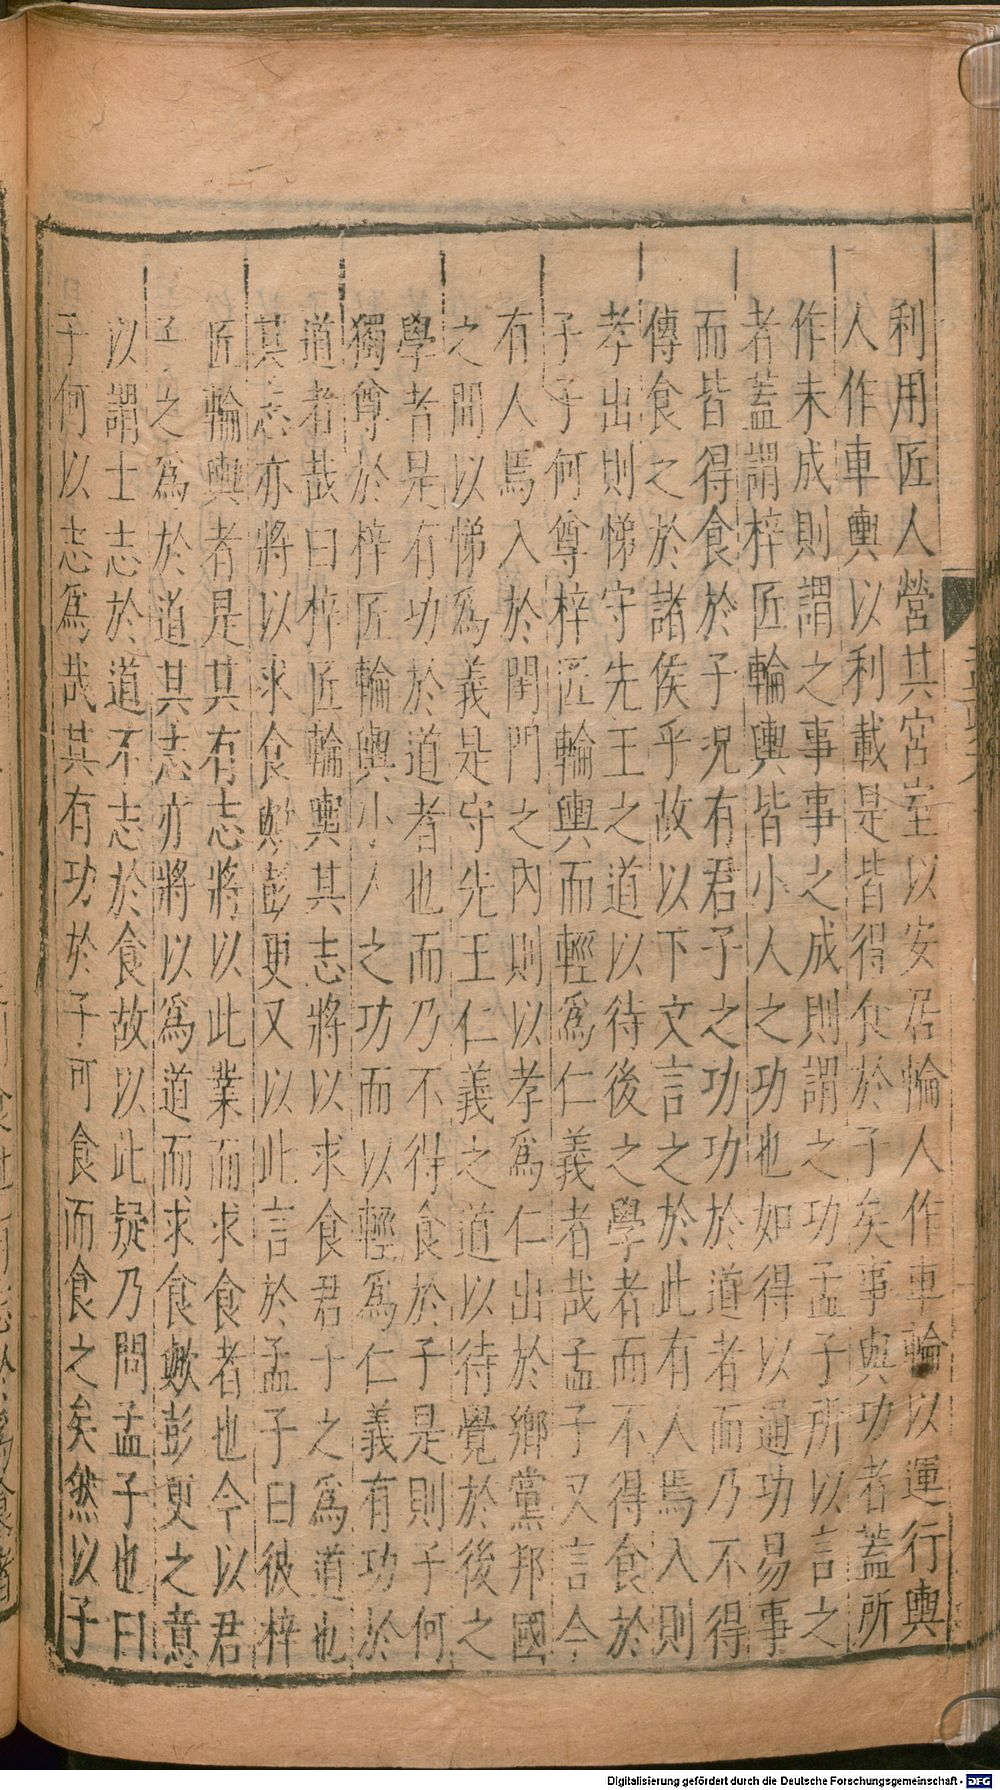 利用匠人營其宮室以安居倫人作車輪以運行輿
人作車輿以利載是皆得食於子矣事與功者蓋所
作未成則謂之事事之成則謂之功孟子所以言之
者蓋謂梓匠輪輿皆小人之功也如得以通功易事
而皆得食於子況有君子之功功於道者而乃不得
傳食之於諸侯乎故以下文言之於此有人焉入則
孝出則悌守先王之道以待後之學者而不得食於
子子何尊梓匠輪輿而輕爲仁義者哉孟子又言今
有人焉入於閨門之內則以孝爲仁出於鄉黨邦國
之間以悌爲義是守先王仁義之道以待覺於後之
學者是有功於道者也而乃不得食於子是則子何
獨尊於梓匠輪輿小人之功而以輕爲仁義有功於
道者哉曰梓匠輪輿其志將以求食君子之爲道也
其志亦將以求食歟彭更又以此言於孟子曰彼梓
匠輪輿者是其有志將以此業而求食者也今以君
子之爲於道其志亦將以爲道而求食歟彭更之意
以謂士志於道不志於食故以此疑乃問孟子也曰
子何以志爲哉其有功於子可食而食之矣然以子
Digitalisierung gefördert durch die Deutsche Forschungsgemeinschaft - DFG